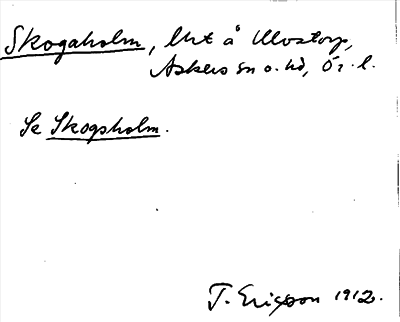 Skogaholm, lht å Ulvstorp,
Askers sn o. hd, Ör. l.
Se Skogsholm.
T. Ericsson 1912.